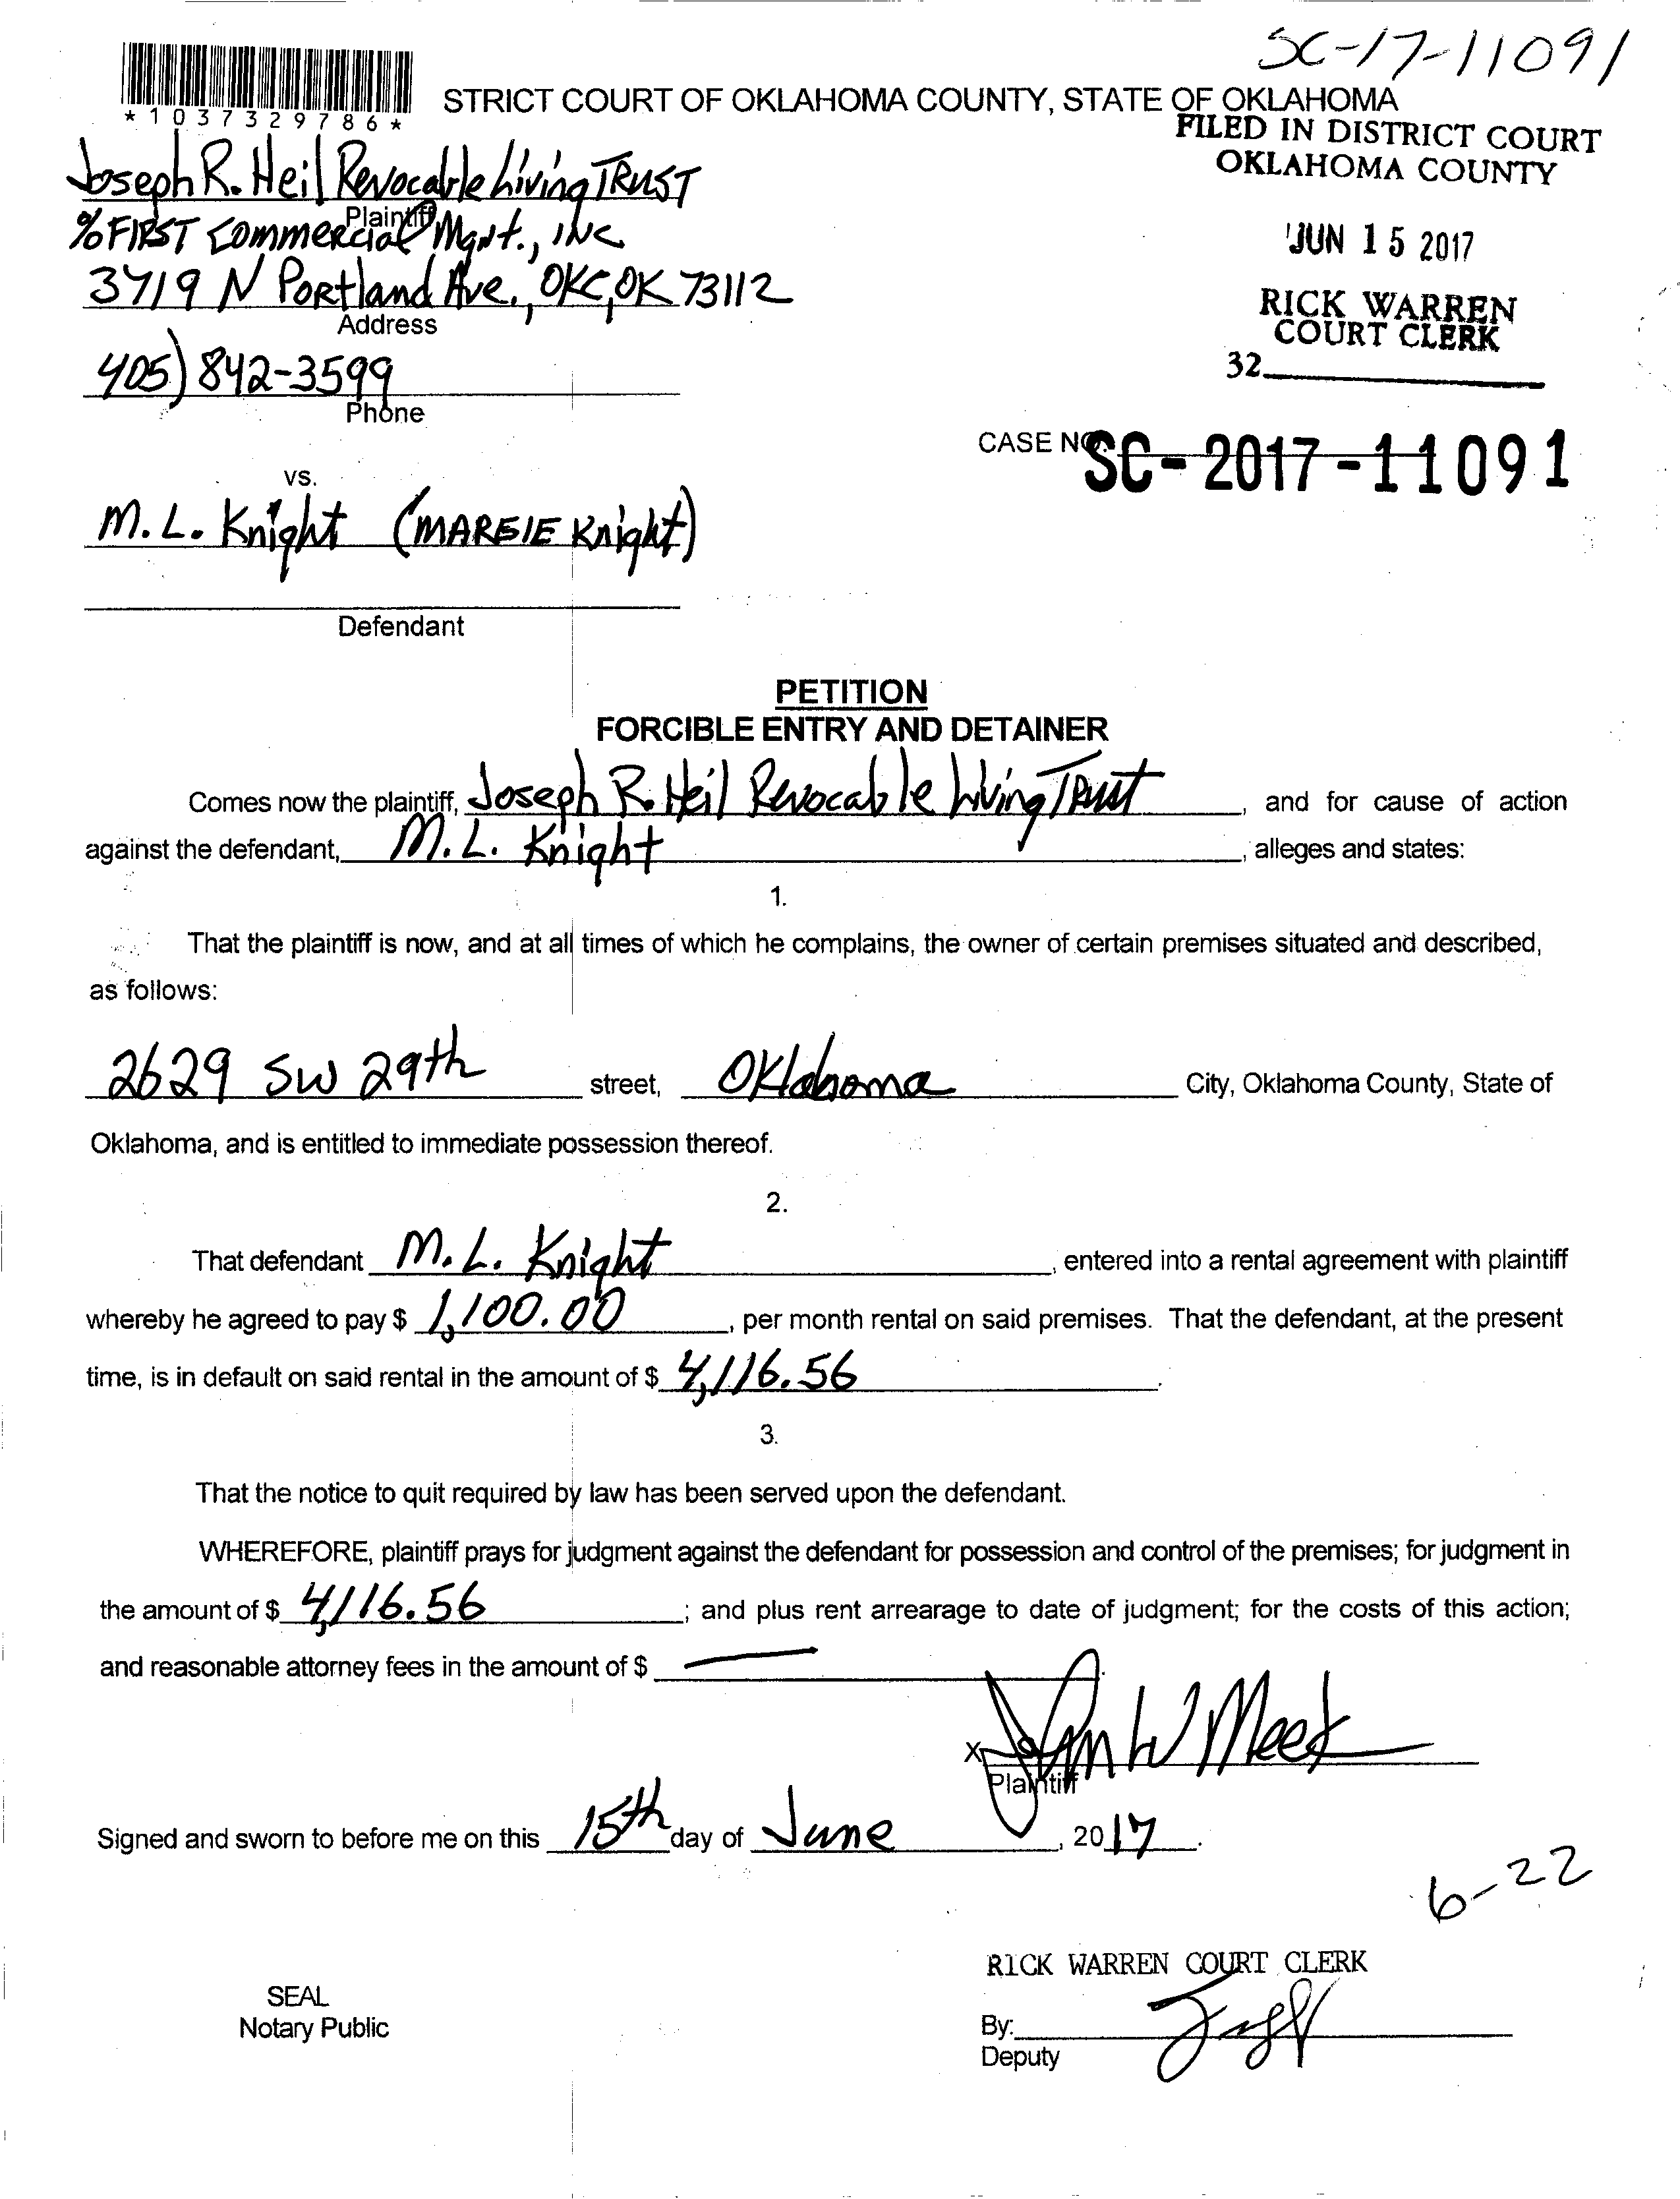 SC-17-11091
*1037329786*
STRICT COURT OF OKLAHOMA COUNTY, STATE OF OKLAHOMA
FILED IN DISTRICT COURT
OKLAHOMA COUNTY
JUN 15 2017
RICK WARREN
COURT CLERK
32
Joseph R. Heil Revocable Living TRUST
Plaintiff
% FIRST Commercial Mgnt., INC
3719 N Portland Ave., OKC, OK 73112
Address
405) 842-3599
Phone
CASE NO. SC-2017-11091
vs.
M. L. Knight (MARGIE Knight)
Defendant
PETITION
FORCIBLE ENTRY AND DETAINER
Comes now the plaintiff, Joseph R. Heil Revocable Living Trust, and for cause of action
against the defendant, M. L. Knight, alleges and states:
1.
That the plaintiff is now, and at all times of which he complains, the owner of certain premises situated and described,
as follows:
2629 SW 29th street, Oklahoma City, Oklahoma County, State of
Oklahoma, and is entitled to immediate possession thereof.
2.
That defendant M. L. Knight, entered into a rental agreement with plaintiff
whereby he agreed to pay $ 1,100.00, per month rental on said premises. That the defendant, at the present
time, is in default on said rental in the amount of $ 4,116.56.
3.
That the notice to quit required by law has been served upon the defendant.
WHEREFORE, plaintiff prays for judgment against the defendant for possession and control of the premises; for judgment in
the amount of $ 4,116.56; and plus rent arrearage to date of judgment; for the costs of this action;
and reasonable attorney fees in the amount of $ —.
X
Plaintiff
Signed and sworn to before me on this 15th day of June, 2017.
6-22
RICK WARREN COURT CLERK
SEAL
Notary Public
By:
Deputy